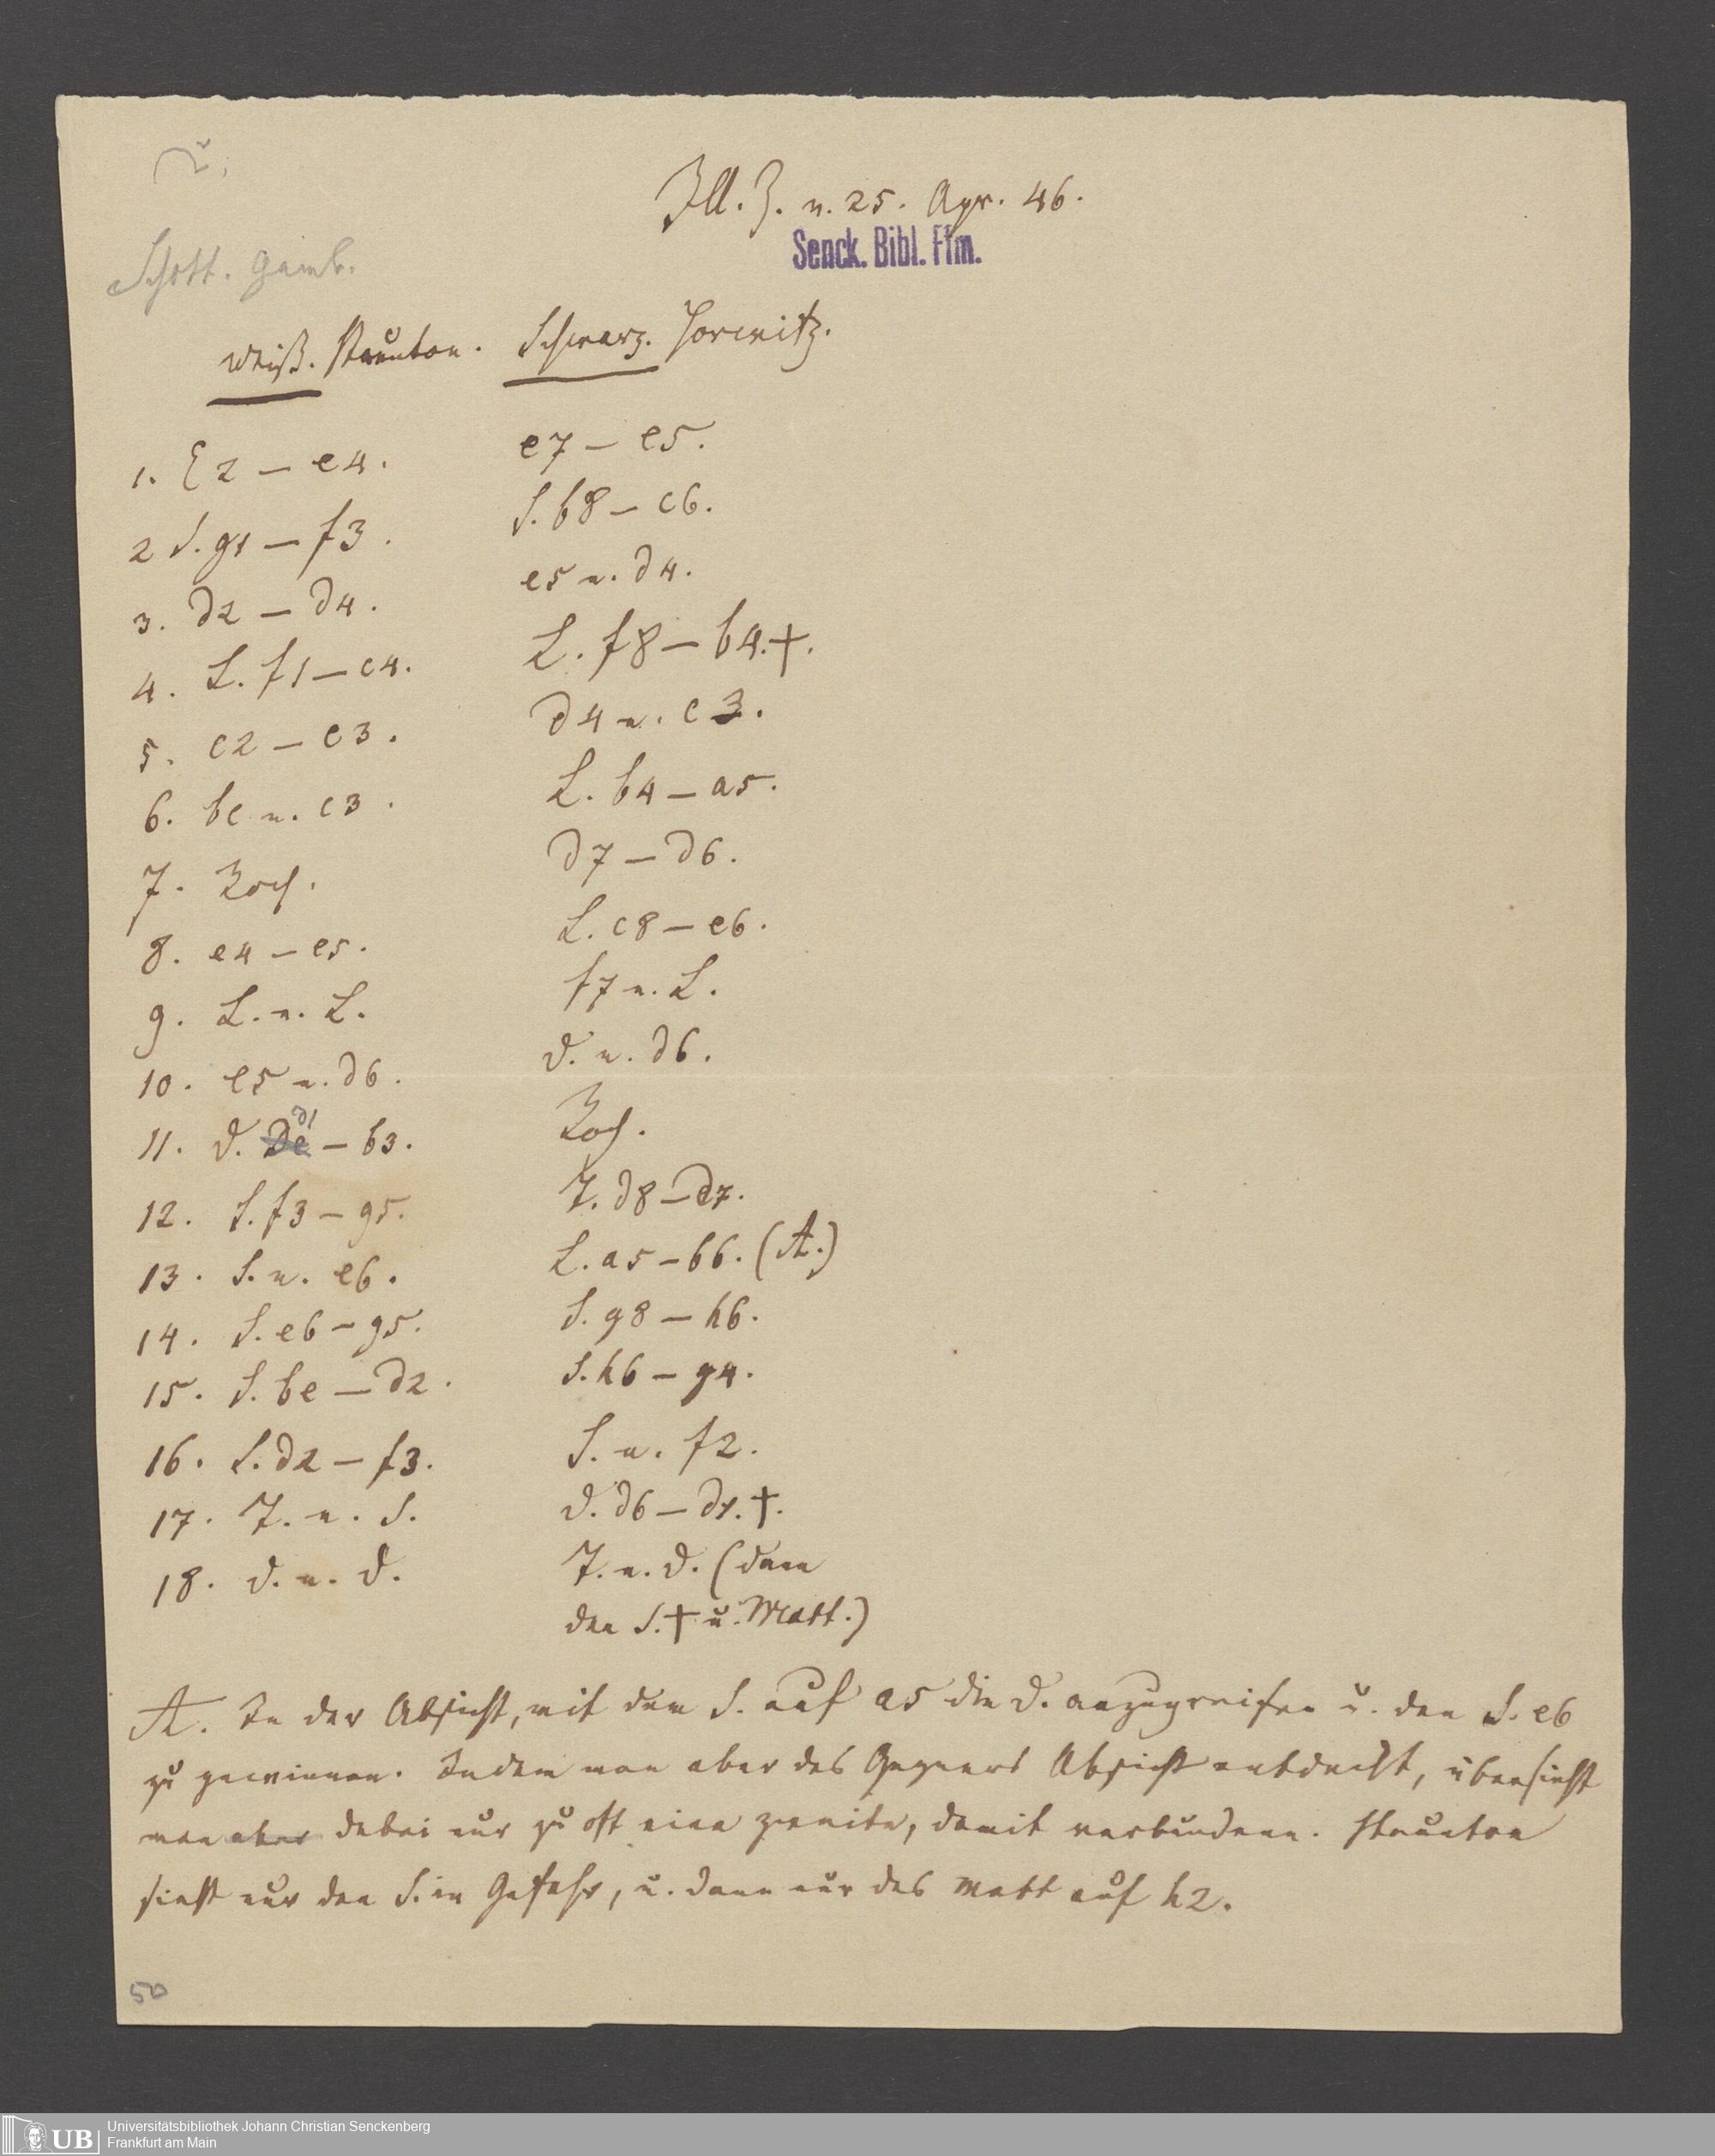 Ill. Z. v. 25. Apr. 46.
Senck. Bibl. Ffm.
Schott. Gamb.
Weiß. Staunton. Schwarz. Horwitz.
1. E2 – e4. e7 – e5.
2 S. g1 – f3. S. b8 – c6.
3. d2 – d4. e5 n. d4.
4. L. f1 – c4. L. f8 – b4. †.
5. c2 – c3. d4 n. c3.
6. be n. c3. L. b4 – a5.
7. Roch. d7 – d6.
8. e4 – e5. L. c8 – e6.
9. L. n. L. f7 n. L.
10. e5 n. d6. D. n. d6.
11. D. d1 – b3. Roch.
12. S. f3 – g5. T. d8 – d7.
13. S. n. e6. L. a5 – b6. (A.)
14. S. e6 – g5. S. g8 – h6.
15. S. be – d2. S. h6 – g4.
16. S. d2 – f3. S. n. f2.
17. T. n. S. D. d6 – d1. †.
18. D. n. D. T. n. D. (dann
den S. † u. Matt.)
A. In der Absicht, mit dem S. auf a5 die D. anzugreifen u. den S. e6
zu gewinnen. Indem man aber des Gegners Absicht entdeckt, übersieht
man aber dabei nur zu oft eine zweite, damit verbundene. Staunton
sieht nur den S. in Gefahr, u. dann nur das Matt auf h2.
50
UB
Universitätsbibliothek Johann Christian Senckenberg
Frankfurt am Main